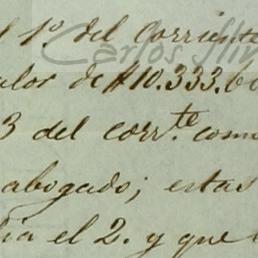 l 1º. del Corriente
valor de $10.333.60
3 del corr.te com
abogado; estas
dia el 2. y que